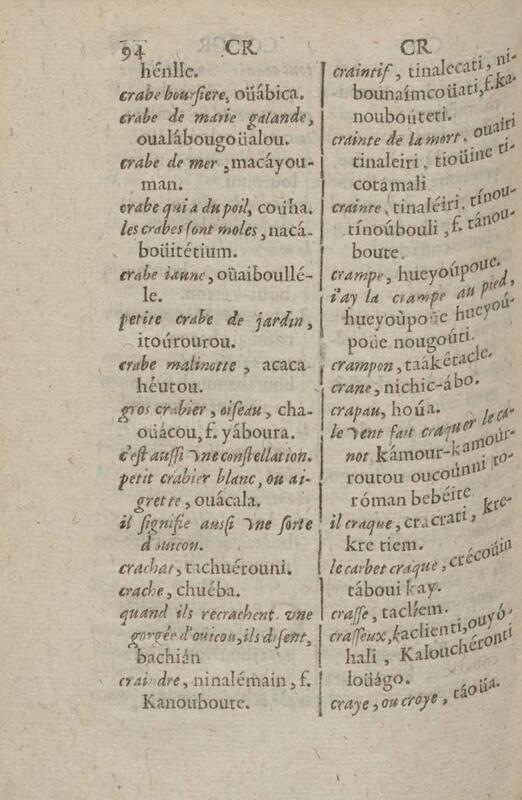 94 CR CR
hénlle.
crabe boursiere, oüábica.
crabe de marie galande,
oualábougoüalou.
crabe de mer, macáyou-
man.
crabe qui a du poil, couha.
les crabes sont moles, nacá-
boüitétium.
crabe iaune, oüaiboullé-
le.
petite crabe de jardin,
itoúrourou.
crabe malinotte, acaca
héutou.
gros crabier, oiseau, cha-
oüácou, f. yáboura.
c'est aussi vne constellation.
petit crabier blanc, ou ai-
grette, ouácala.
il signifie aussi vne sorte
d'ouicou.
crachat, tachuérouni.
crache, chuéba.
quand ils recrachent vne
gorgée d'ouicou, ils disent,
bachián
craindre, ninalémain, f.
Kanouboute.
craintif, tinalecati, ni-
bounaímcoüati, f. ka-
nouboúteti.
crainte de la mort, ouairi
tinaleiri, tioüine ti-
cotámali
crainte, tinaléiri, tínou-
tínoúbouli, f. tánou-
boute.
crampe, hueyoúpoue.
i'ay la crampe au pied,
hueyoùpoüe hueyoú-
poüe nougoúti.
crampon, taákêtacle.
crane, nichic-ábo.
crapau, hoúa.
le vent fait craquer le ca-
not kámour-kamour-
routou oucoúnni to-
róman bebéite
il craque, cracrati, kre-
kre tiem.
le carbet craque, crécoüin
táboui kay.
crasse, taclíem.
crasseux, kaclienti, ouyó-
hali, Kaloucheronti
loüágo.
craye, ou croye, táoüa.